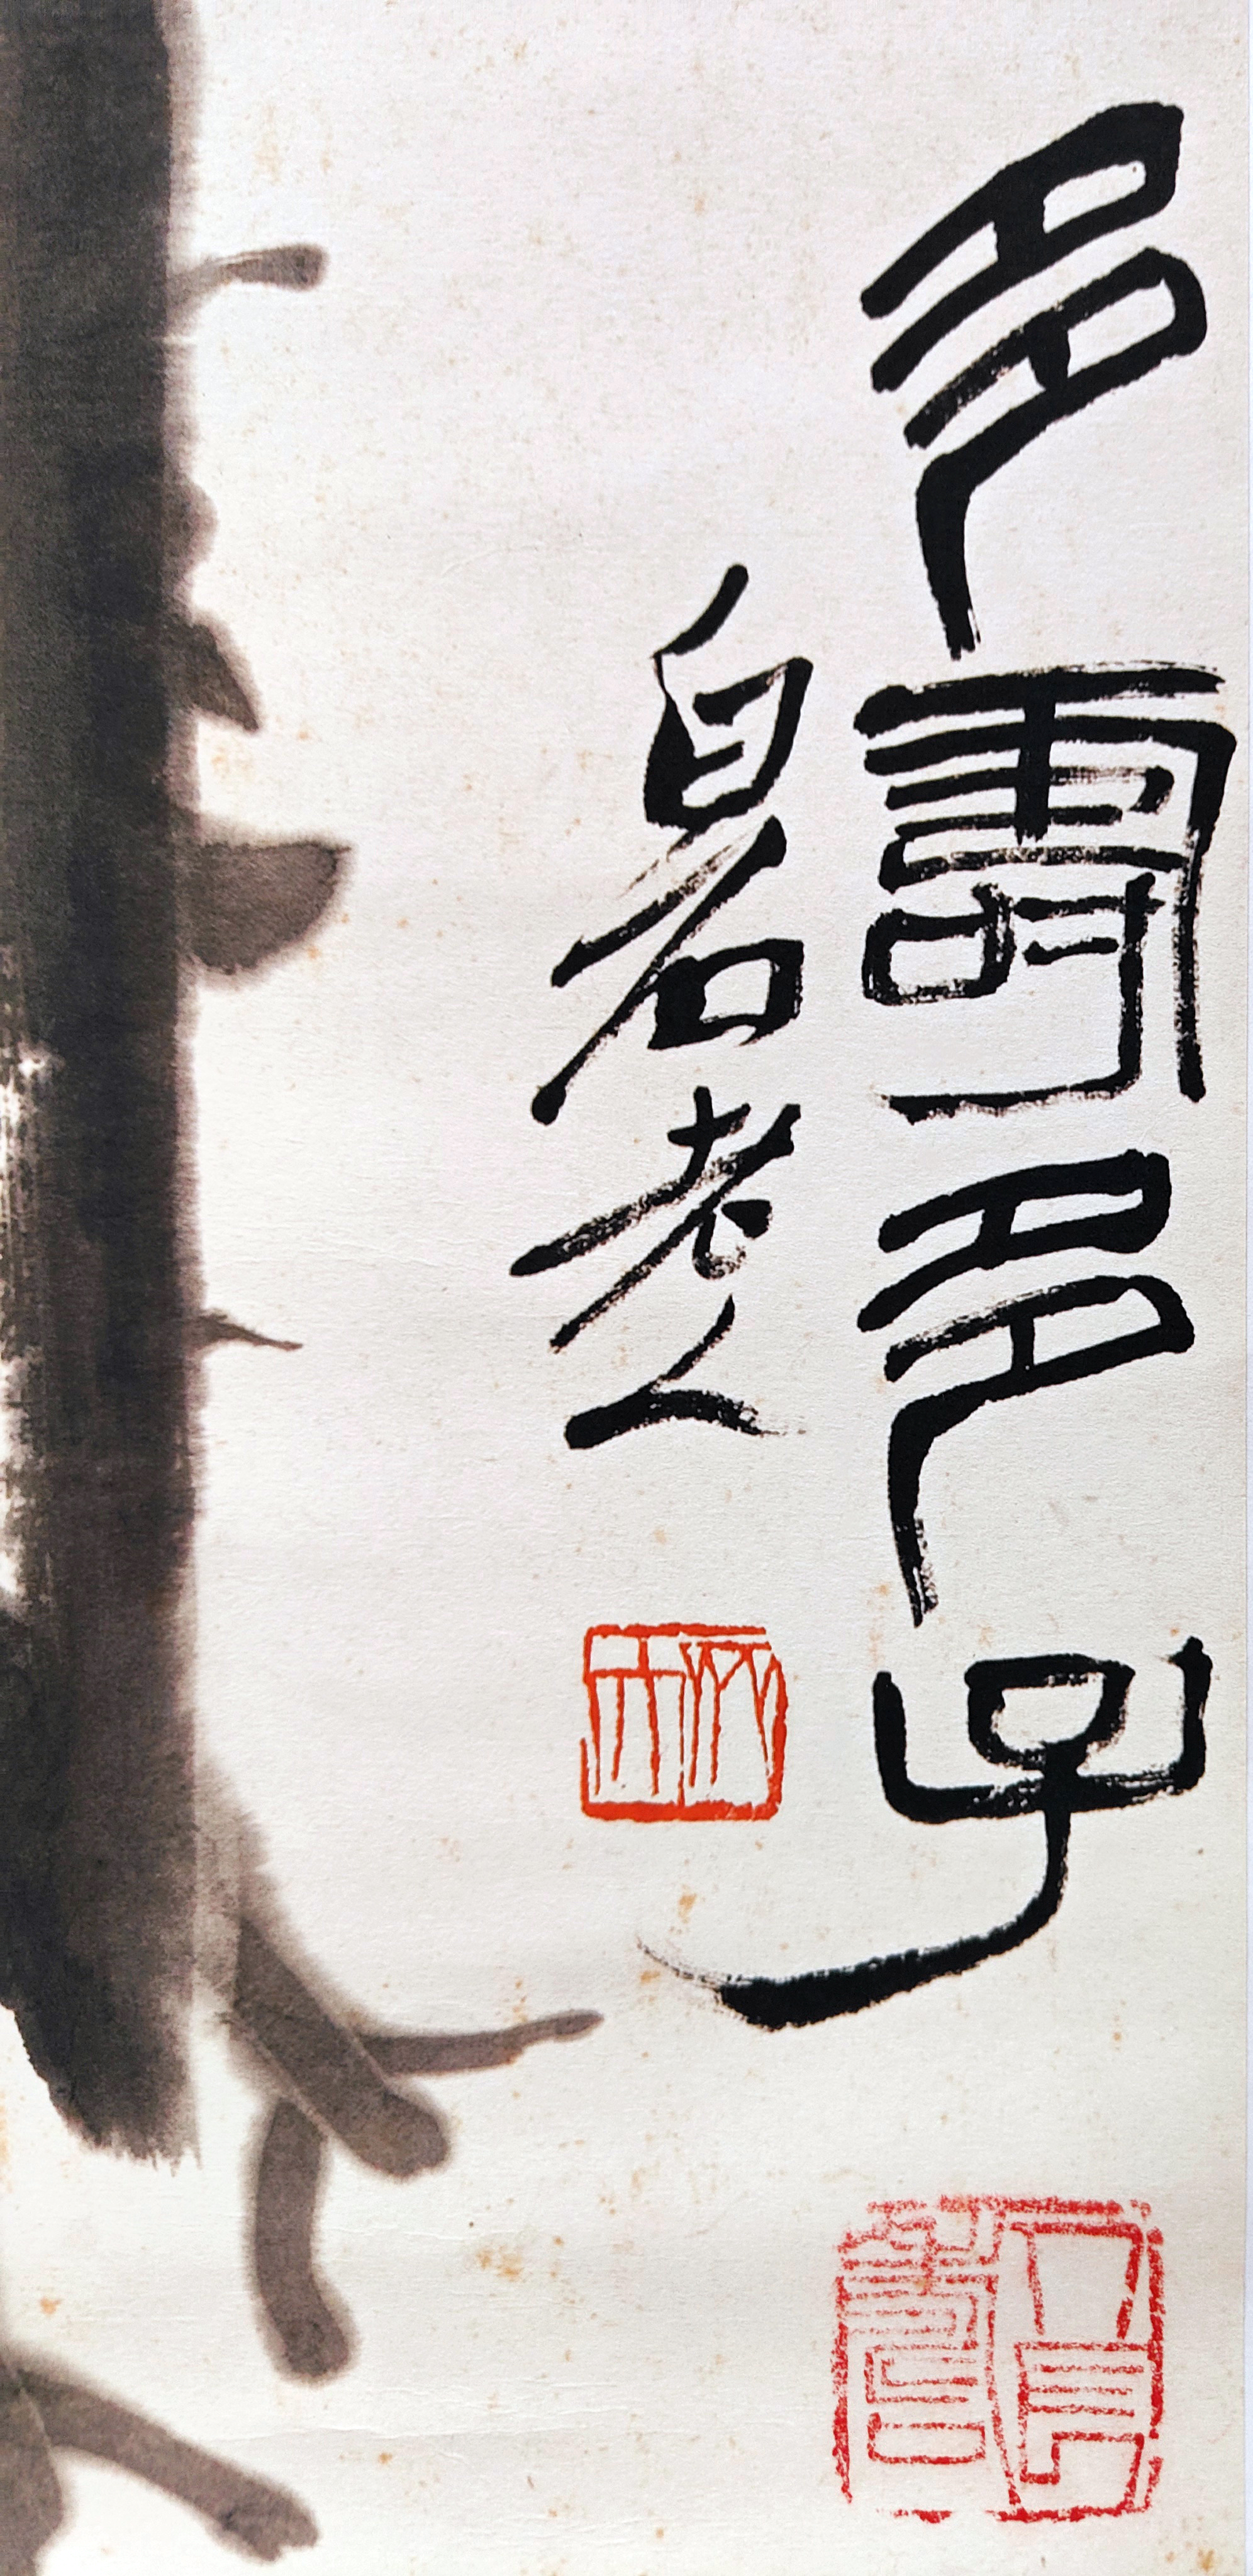 多壽多子
白石老人
木人